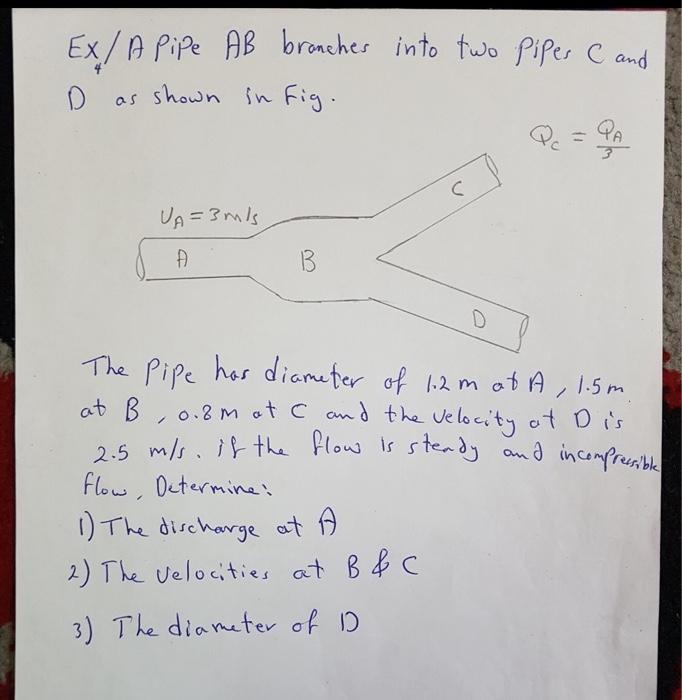 Ex/4 A Pipe AB branches into two Pipes C and
D as shown in Fig.
Qc = QA/3
UA = 3 m/s
C
A
B
D
The Pipe has diameter of 1.2 m at A, 1.5 m
at B, 0.8 m at C and the velocity at D is
2.5 m/s. if the flow is steady and incompressible
flow, Determine:
1) The discharge at A
2) The velocities at B & C
3) The diameter of D